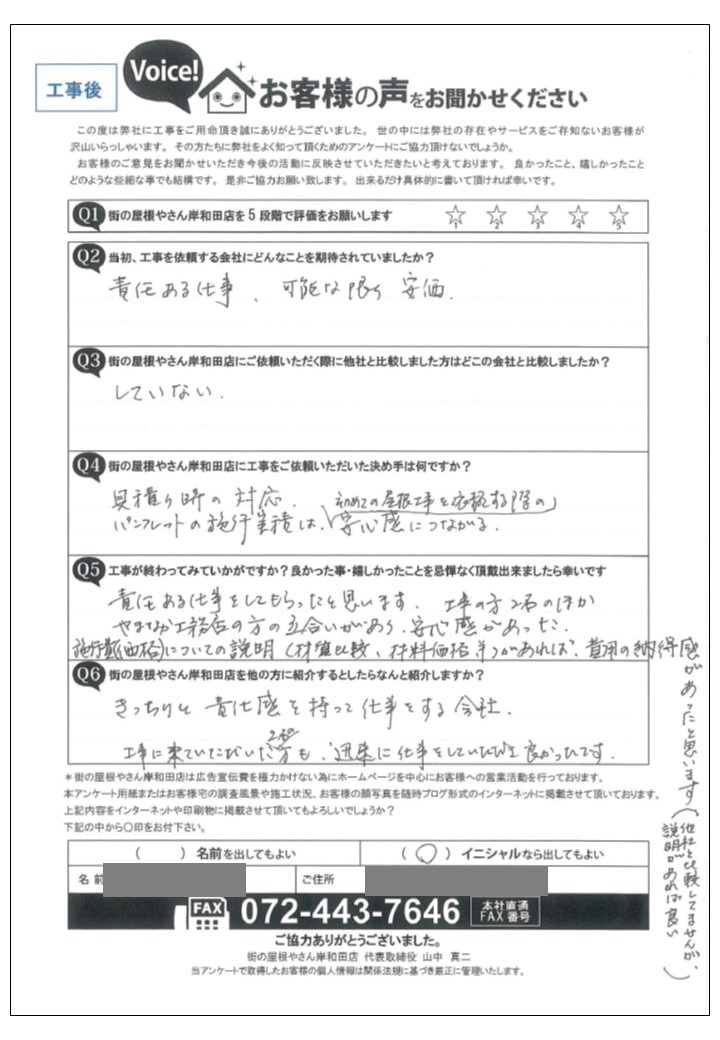 工事後
Voice!
お客様の声をお聞かせください
この度は弊社に工事をご用命頂き誠にありがとうございました。 世の中には弊社の存在やサービスをご存知ないお客様が
沢山いらっしゃいます。 その方たちに弊社をよく知って頂くためのアンケートにご協力頂けないでしょうか。
お客様のご意見をお聞かせいただき今後の活動に反映させていただきたいと考えております。 良かったこと、嬉しかったこと
どのような些細な事でも結構です。 是非ご協力お願い致します。 出来るだけ具体的に書いて頂ければ幸いです。
Q1 街の屋根やさん岸和田店を5段階で評価をお願いします
1 2 3 4 5
Q2 当初、工事を依頼する会社にどんなことを期待されていましたか?
責任ある仕事、可能な限り 安価.
Q3 街の屋根やさん岸和田店にご依頼いただく際に他社と比較しました方はどこの会社と比較しましたか?
していない.
Q4 街の屋根やさん岸和田店に工事をご依頼いただいた決め手は何ですか?
見積り時の対応.
初めての屋根工事を依頼する際の
パンフレットの施行実積は、安心感につながる.
Q5 工事が終わってみていかがですか?良かった事・嬉しかったことを忌憚なく頂戴出来ましたら幸いです
責任ある仕事をしてもらったと思います. 工事の方2名のほか
やまなか工務店の方の立合いがあり、安心感があった.
施行費(価格)についての説明(材質比較、材料価格等)があれば、費用の納得感
があったと思います(他社と比較してませんが、
説明があれば良い)
Q6 街の屋根やさん岸和田店を他の方に紹介するとしたらなんと紹介しますか?
きっちりと責任感を持って仕事をする会社.
2名
工事に来ていただいた方も、迅速に仕事をしていただき良かったです.
*街の屋根やさん岸和田店は広告宣伝費を極力かけない為にホームページを中心にお客様への営業活動を行っております。
本アンケート用紙またはお客様宅の調査風景や施工状況、お客様の顔写真を随時ブログ形式のインターネットに掲載させて頂いております。
上記内容をインターネットや印刷物に掲載させて頂いてもよろしいでしょうか?
下記の中から〇印をお付下さい。
( ) 名前を出してもよい
( ○ ) イニシャルなら出してもよい
名前
ご住所
FAX 072-443-7646 本社直通 FAX番号
ご協力ありがとうございました。
街の屋根やさん岸和田店 代表取締役 山中 真二
当アンケートで取得したお客様の個人情報は関係法規に基づき厳正に管理いたします。